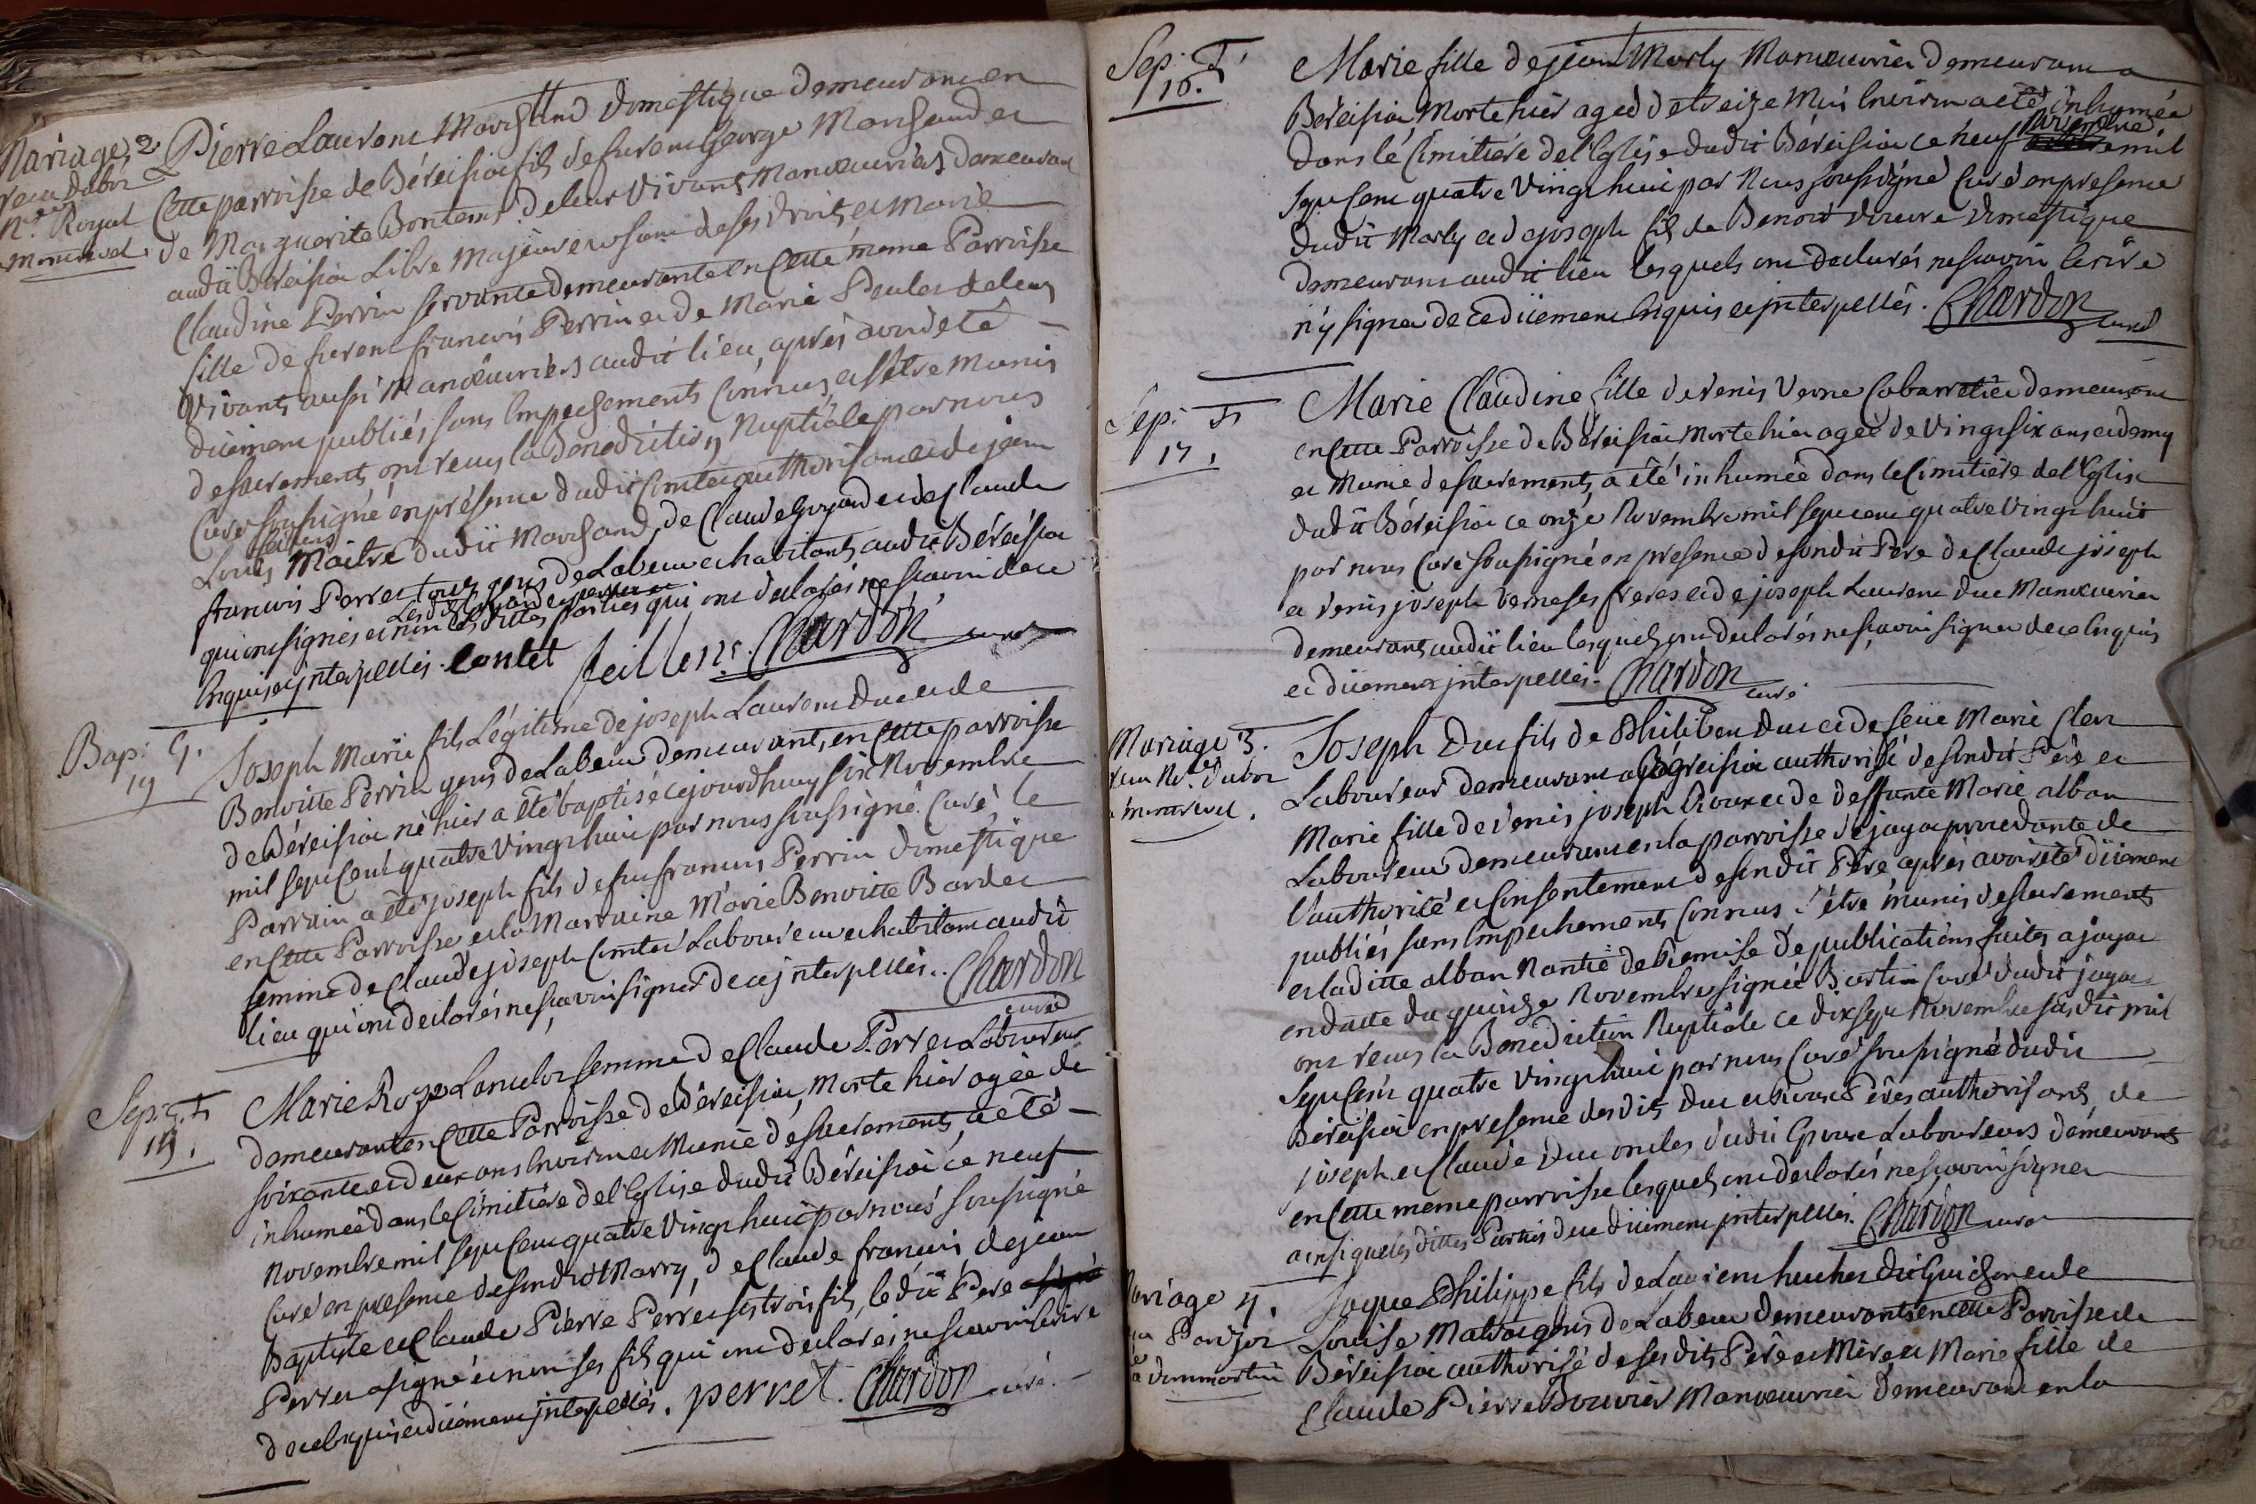 Mariage 2.
receu Dubor
Nre Royal
a Montrevel.
Pierre Laurent Marchand Domestique demeurant en
Cette parroisse de Béréisiat fils de furent George Marchand et
de Marguerite Bontems de leur Vivants Manoeuvriers demeurant
audit Béréisiat Libre Majeur et usant de ses droits, et Marie
Claudine Perrin servante demeurante en Cette meme Parroisse
fille de furent francois Perrin et de Marie Poulet de leur
Vivants aussi Manoeuvriers audit lieu, après avoir eté
düement publiés, sans Empechements Connus, et s'etre Munis
de sacrements, ont recus la Benediction Nuptiale par nous
Curé soussigné en présence dudit Comte authorisant et de jean
Louis feillens Maitre dudit Marchand, de Claude Guyonder et de Claude
francois Perret tous gens de Labeur et habitants audit Béréisiat
qui ont signés et non les dittes parties qui ont declarés ne scavoir de ce
Enquis et interpellés. Contet feillens. Chardon curé
Bap: 9.
19
Joseph Marie fils Légitime de joseph Laurent Duc et de
Benoitte Perrin gens de Labeur demeurants en Cette parroisse
de Béréisiat né hier a eté baptisé cejourdhuy six Novembre
mil sept Cent quatre Vingt huit par nous soussigné Curé, le
Parrain a eté joseph fils de feu francois Perrin domestique
en Cette Parroisse et la Marraine Marie Benoitte Bardet
femme de Claude joseph Comtet Laboureur et habitant audit
lieu qui ont declarés ne scavoir signer de ce interpellés. Chardon
curé
Sep: †
15.
Marie Roze Lancelot femme de Claude Perret Laboureur
demeurante en Cette Parroisse de Béréisiat, Morte hier agée de
soixante et deux ans Environ et Munie de sacrements, a eté
inhumée dans le Cimitiére de l'Eglise dudit Béréisiat ce neuf
Novembre mil sept Cent quatre Vingt huit par nous soussigné
Curé en presence de sondit Marry, de Claude francois, de jean
Baptiste et Claude Pierre Perret ses trois fils, le dit Pere
Perret a signé et non ses fils qui ont declarés ne scavoir Ecrire
de ce Enquis et düement interpellés. perret. Chardon curé.
Sep: †
16.
Marie fille de jean Marly Manoeuvrier demeurant a
Béréisiat Morte hier agée de treize Mois Environ a eté inhumée
dans le Cimitiére de l'Eglise dudit Béréisiat ce neuf Novembre mil
sept Cent quatre Vingt huit par Nous soussigné Curé en presence
dudit Marly et de joseph fils de Benoit domestique
demeurant audit lieu lesquels ont declarés ne scavoir Ecrire
n'y signer de ce düement Enquis et interpellés. Chardon curé
Sep: †
17.
Marie Claudine fille de denis Verne Cabarretier demeurant
en Cette Parroisse de Béréisiat Morte hier agée de Vingt six ans et demy
et Munie de sacrements, a été inhumée dans le Cimitiére de l'Eglise
dudit Béréisiat ce onze Novembre mil sept cent quatre Vingt huit
par nous Curé soussigné en presence de sondit Pere de Claude joseph
et denis joseph Verne ses freres et de joseph Laurent Duc Manoeuvrier
demeurants audit lieu lesquels ont declarés ne scavoir signer de ce Enquis
et düement interpellés. Chardon curé
Mariage 3.
receu Nre Dubor
a Montrevel.
Joseph Duc fils de Philibert Duc et de feüe Marie Clerc
Laboureur demeurant a Béréisiat authorisé de sondit Pere et
Marie fille de denis joseph Rioux et de deffunte Marie alban
Laboureur demeurant en la parroisse de jayat procedante de
l'authorité et Consentement de sondit Pére après avoir eté düement
publiés sans Empechements Connus s'être munis de sacrements
et laditte alban Nantie de Remise de publications faites a jayat
en datte du quinze Novembre signée Bartin Curé dudit jayat
ont recus la Benediction Nuptiale ce dix sept Novembre susdit mil
sept Cent quatre Vingt huit par nous Curé soussigné dudit
Béréisiat en presence des dits Duc et Rioux Péres authorisants, de
joseph et Claude Duc oncles dudit Epoux Laboureurs demeurants
en Cette meme parroisse lesquels ont declarés ne scavoir signer
ainsi que les dittes Parties de ce düement interpellés. Chardon curé
Mariage 4.
Ponjon
a dommartin
Jaque Philippe fils de Laurent huchet dit Guichon et de
Louise gens de Labeur demeurants en Cette Parroisse de
Béréisiat authorisé de ses dits Pére et Mére et Marie fille de
Claude Pierre Bouvier Manoeuvrier demeurant en la